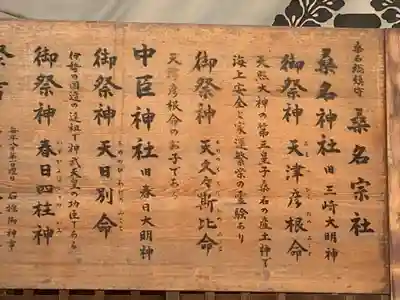 桑名総鎮守 桑名宗社
桑名神社 旧三崎大明神
御祭神 天津彦根命
天照大神の第三皇子桑名の産土神で
海上安全と家運繁栄の霊験あり
御祭神 天久々斯比命
天津彦根命のお子である
中臣神社 旧春日大明神
御祭神 天日別命
伊勢の国造の遠祖で神武天皇の功臣である
御祭神 春日四柱神
石採御神事